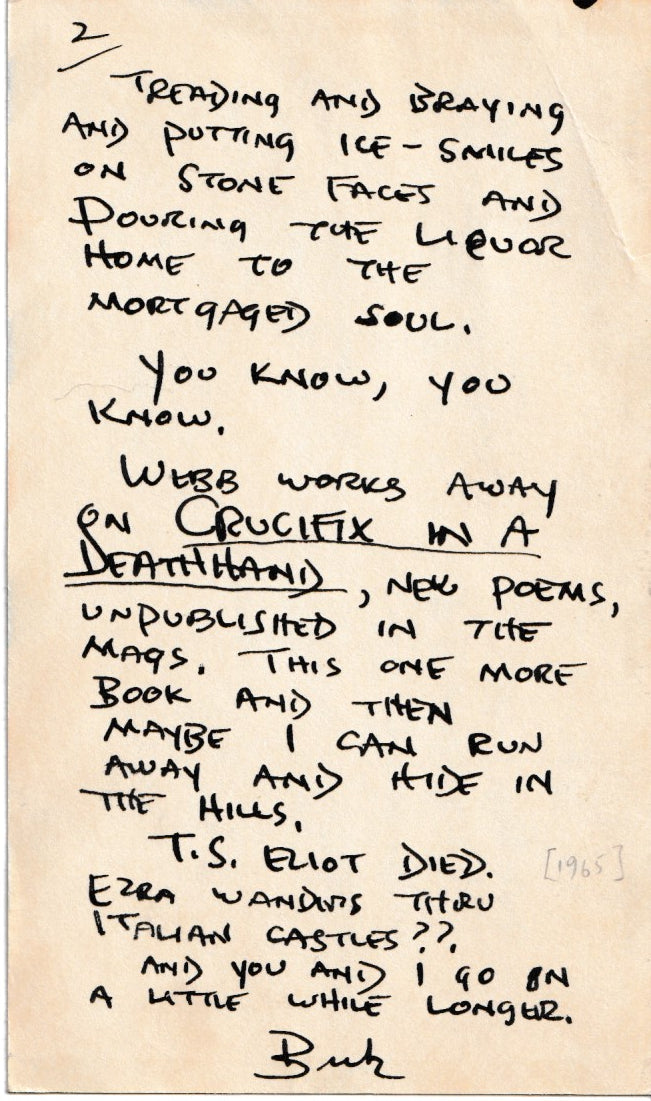 2
TREADING AND BRAYING
AND PUTTING ICE-SMILES
ON STONE FACES AND
POURING THE LIQUOR
HOME TO THE
MORTGAGED SOUL.
YOU KNOW, YOU
KNOW.
WEBB WORKS AWAY
ON CRUCIFIX IN A
DEATHHAND, NEW POEMS,
UNPUBLISHED IN THE
MAGS. THIS ONE MORE
BOOK AND THEN
MAYBE I CAN RUN
AWAY AND HIDE IN
THE HILLS.
T.S. ELIOT DIED. [1965]
EZRA WANDERS THRU
ITALIAN CASTLES??.
AND YOU AND I GO ON
A LITTLE WHILE LONGER.
Buk